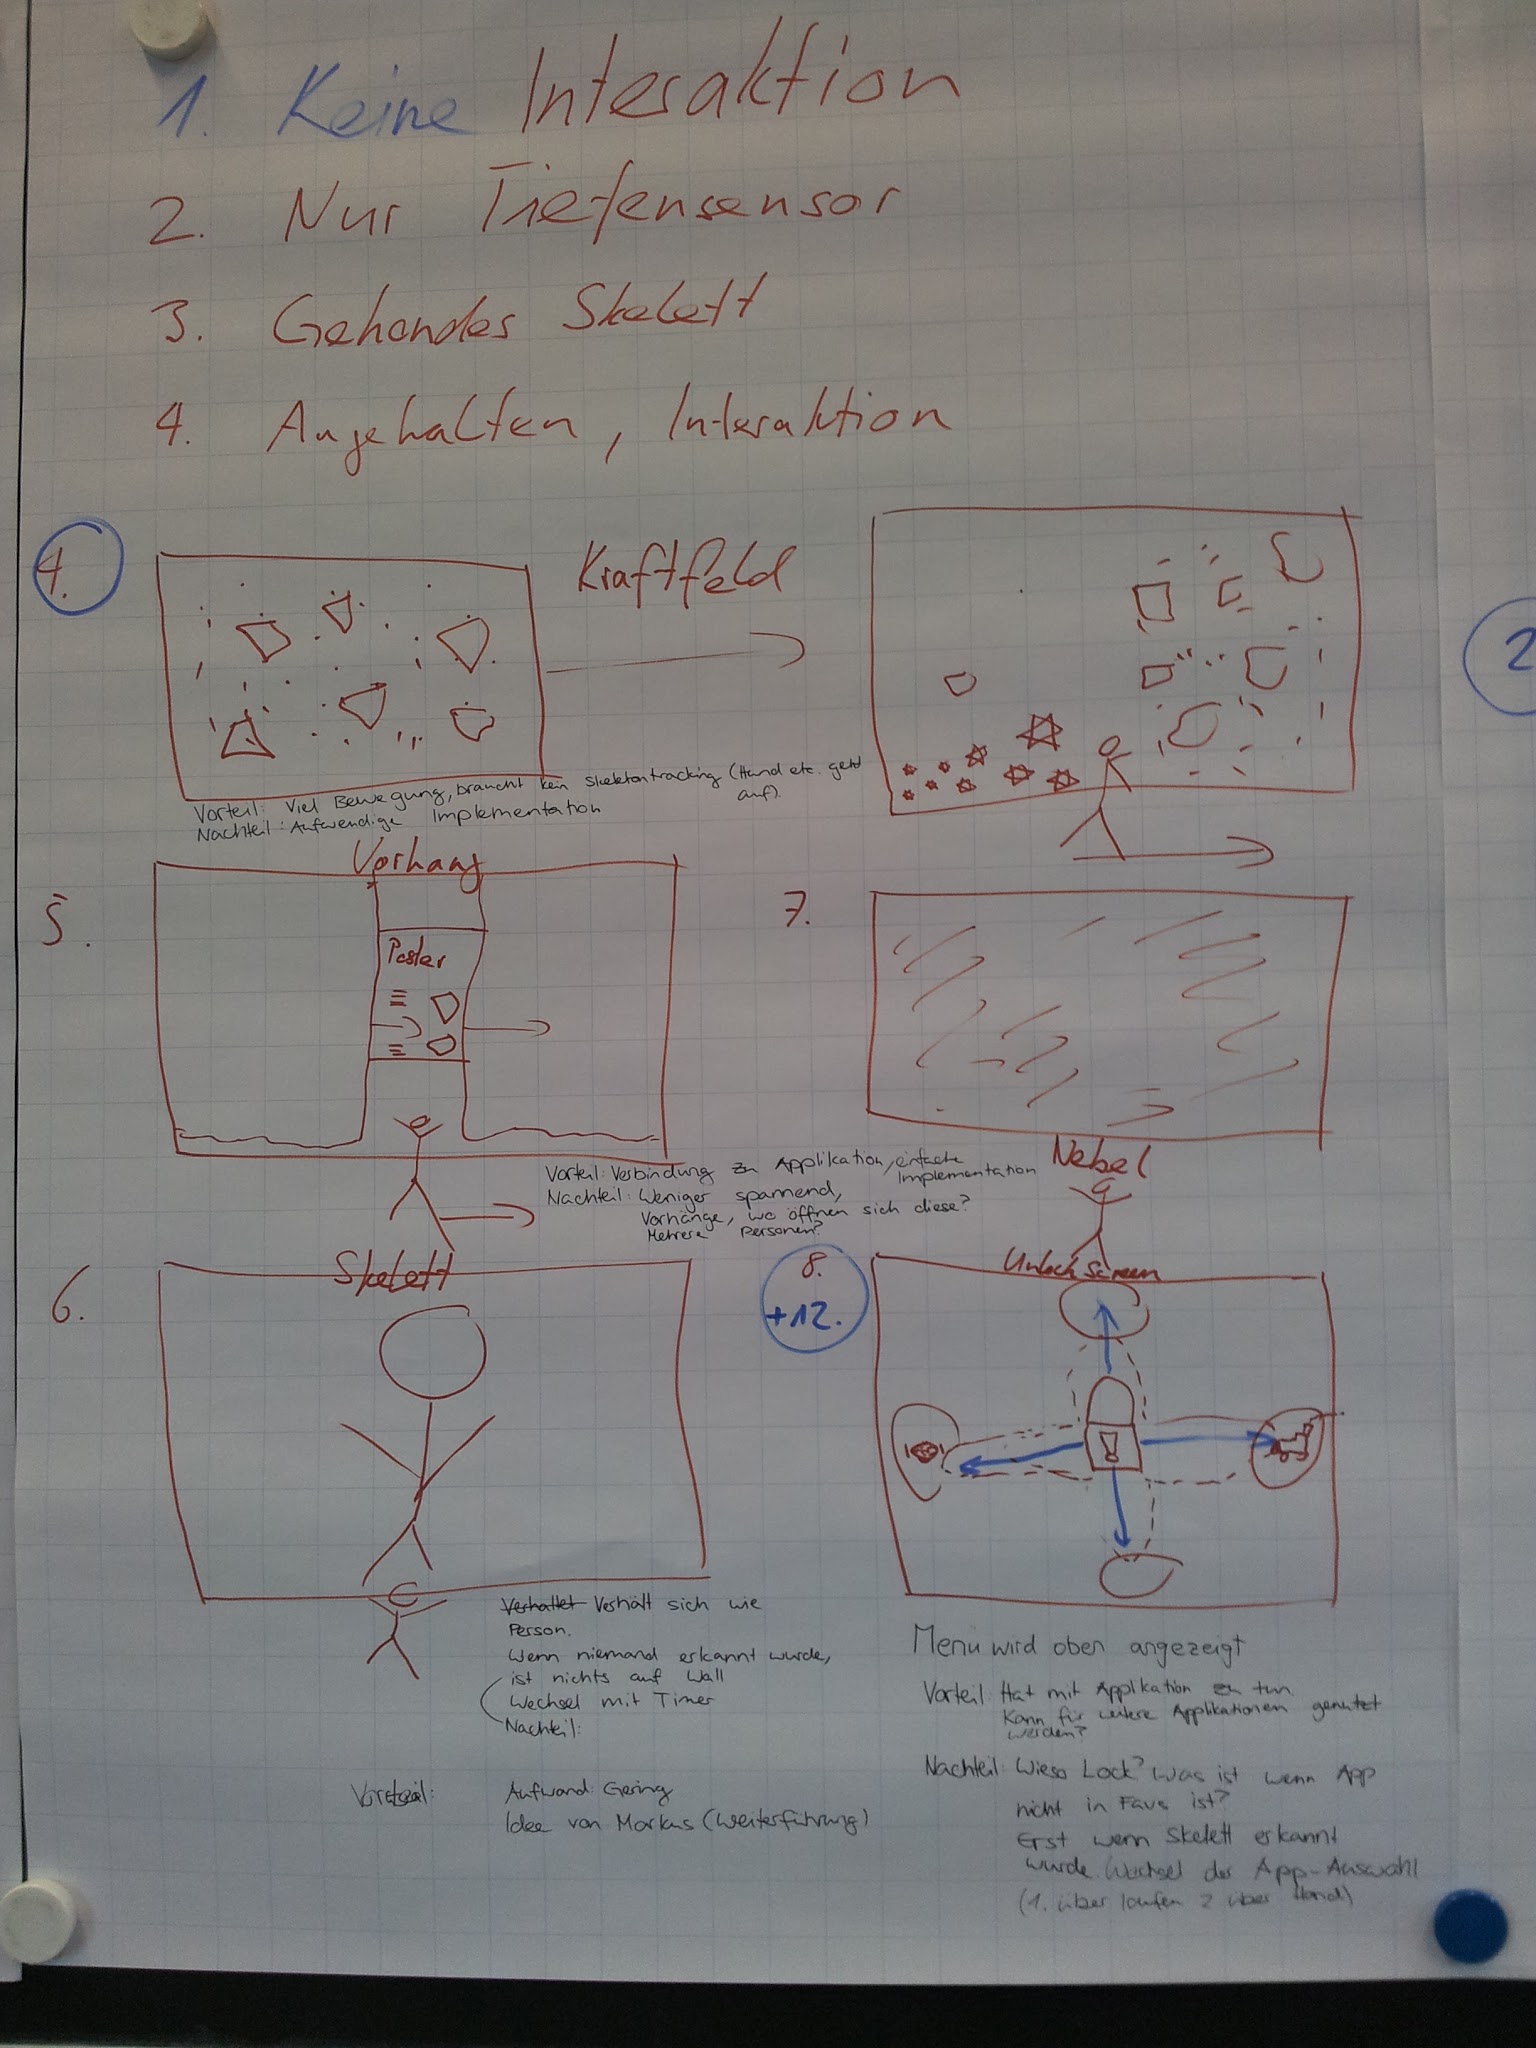 1. Keine Interaktion
2. Nur Tiefensensor
3. Gehendes Skelett
4. Angehalten, Interaktion
4.
Kraftfeld
2
Vorteil: Viel Bewegung, braucht kein Skeletontracking (Hand etc. geht
auf).
Nachteil: Aufwendige Implementation
5.
Vorhang
Poster
Vorteil: Verbindung zu Applikation, einfache
Implementation
Nachteil: Weniger spannend,
Vorhänge, wo öffnen sich diese?
Mehrere Personen?
7.
Nebel
6.
Skelett
Verhaltet Verhält sich wie
Person.
Wenn niemand erkannt wurde,
ist nichts auf Wall
Wechsel mit Timer
Nachteil:
Vorteil: Aufwand: Gering
Idee von Markus (Weiterführung)
8.
+12.
Unlock Screen
Menü wird oben angezeigt
Vorteil: Hat mit Applikation zu tun.
Kann für weitere Applikationen genutzt
werden?
Nachteil: Wieso Lock? Was ist wenn App
nicht in Favs ist?
Erst wenn Skelett erkannt
wurde. Wechsel der App-Auswahl
(1. über laufen 2 über Hand)